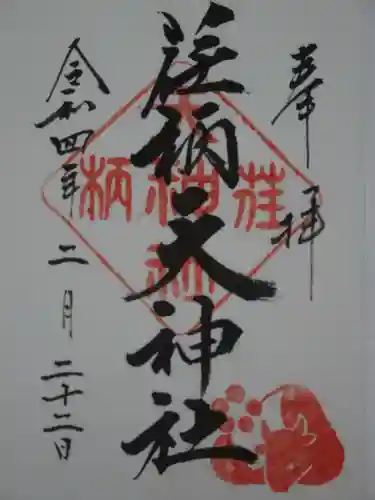 奉拝
荏柄天神社
荏柄天神社
令和四年二月二十二日